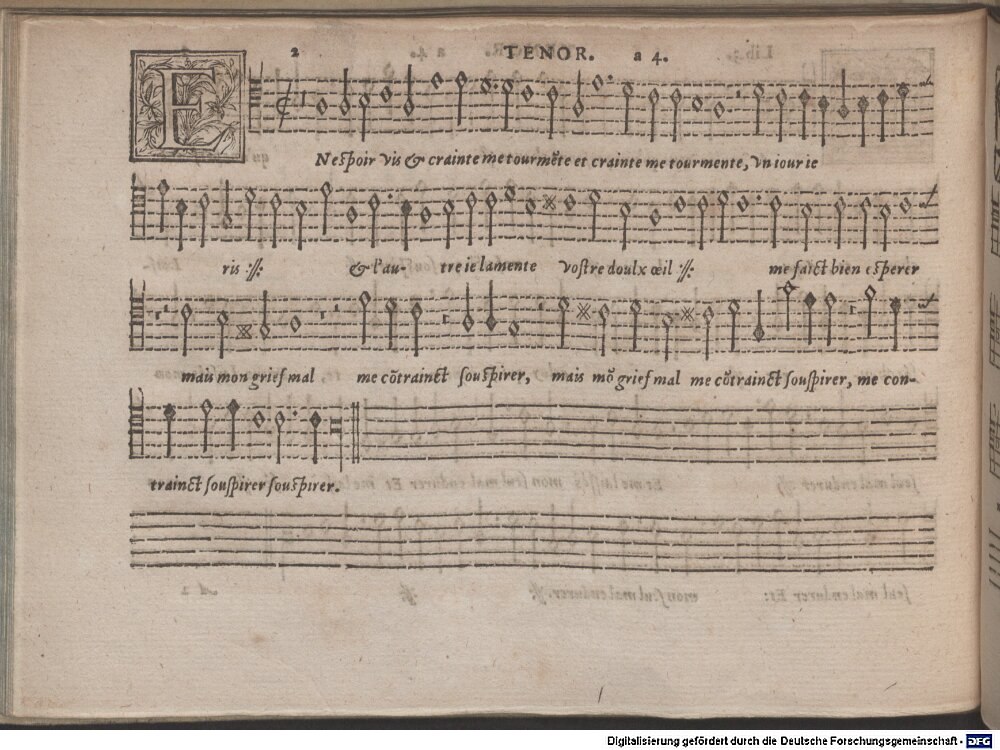 2 TENOR. a 4.
E
N espoir vis & crainte me tourmẽte et crainte me tourmente, vn iour ie
ris :||: & l'au- tre ie lamente vostre doulx œil :||: me faict bien esperer
mais mon grief mal me cõtrainct souspirer, mais mõ grief mal me cõtrainct souspirer, me con-
trainct souspirer souspirer.
Digitalisierung gefördert durch die Deutsche Forschungsgemeinschaft - DFG